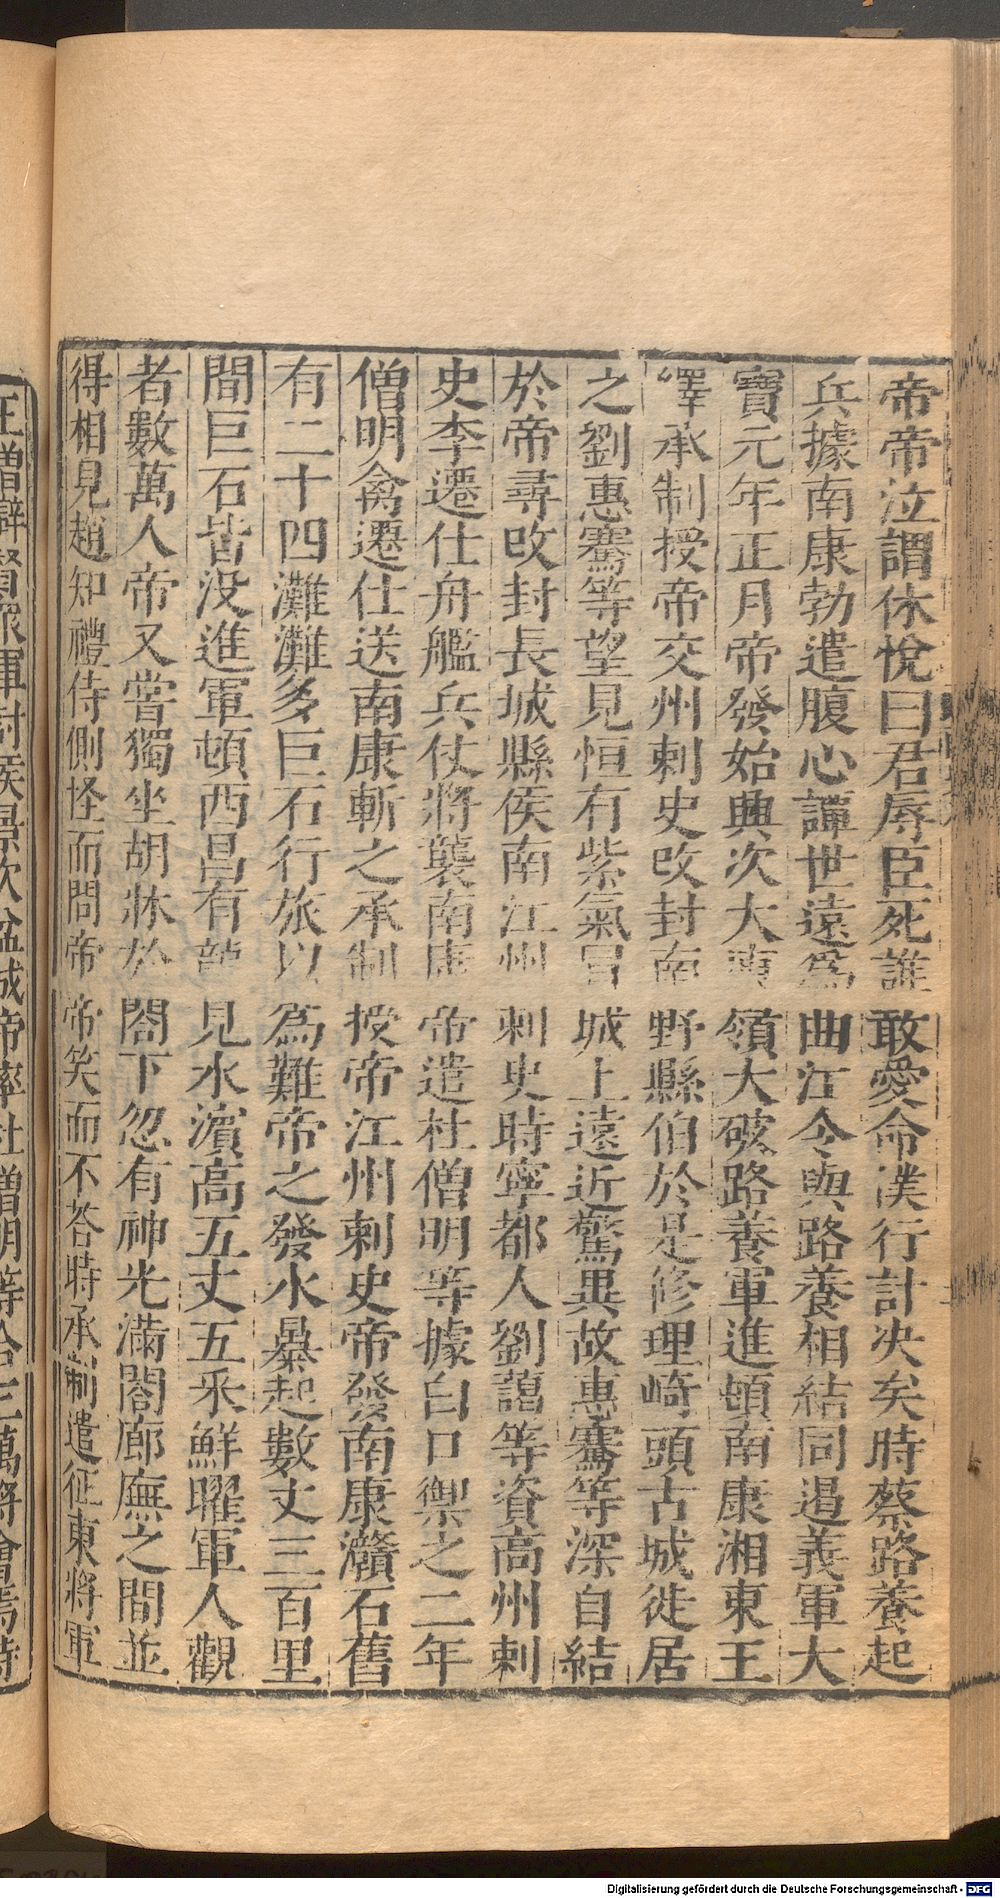 帝帝泣謂休悅曰君辱臣死誰敢愛命僕行計決矣時蔡路養起
兵據南康勃遣腹心譚世遠爲曲江令與路養相結同遏義軍大
寶元年正月帝發始興次大庾嶺大破路養軍進頓南康湘東王
繹承制授帝交州刺史改封南野縣伯於是修理崎頭古城徙居
之劉惠騫等望見恒有紫氣冒城上遠近驚異故惠騫等深自結
於帝尋改封長城縣侯南江州刺史時寧都人劉藹等資高州刺
史李遷仕舟艦兵仗將襲南康帝遣杜僧明等據白口禦之二年
僧明禽遷仕送南康斬之承制授帝江州刺史帝發南康灨石舊
有二十四灘灘多巨石行旅以爲難帝之發水暴起數丈三百里
間巨石皆没進軍頓西昌有龍見水濵高五丈五釆鮮曜軍人觀
者數萬人帝又嘗獨坐胡牀於閤下忽有神光滿閤廊廡之間並
得相見趙知禮侍側怪而問帝帝笑而不荅時承制遣征東將軍
王僧辯督衆軍討侯景次盆城帝率杜僧明等合三萬將會焉時
Digitalisierung gefördert durch die Deutsche Forschungsgemeinschaft - DFG